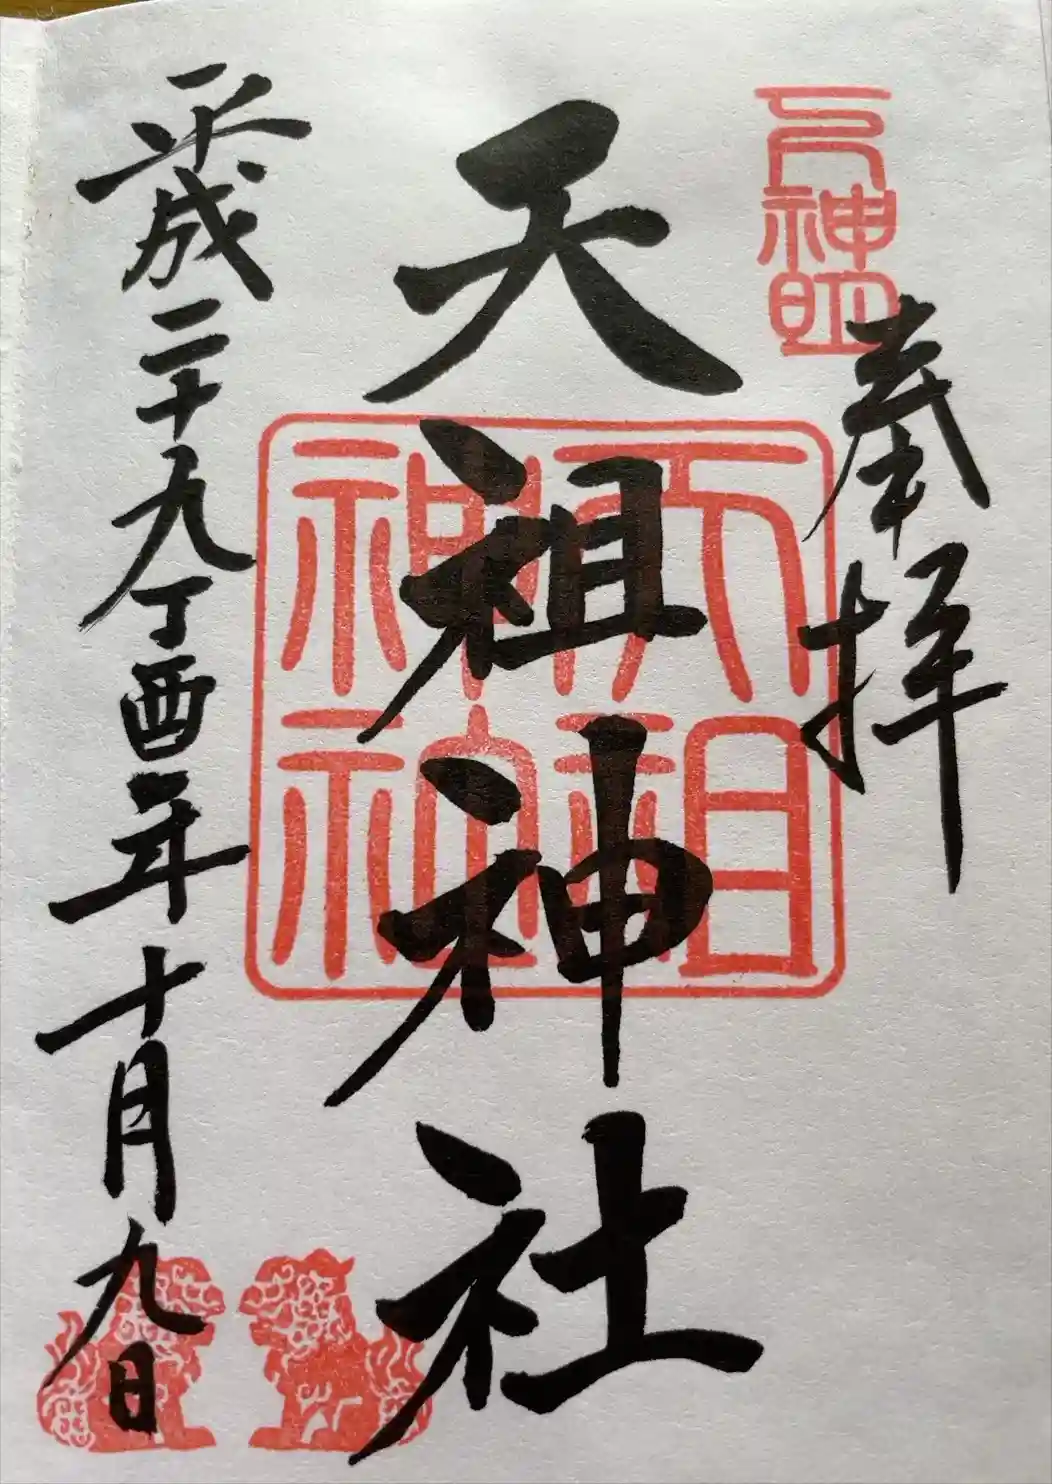 神明
奉拝
天祖神社
天祖
神社
平成二十九丁酉年十月九日